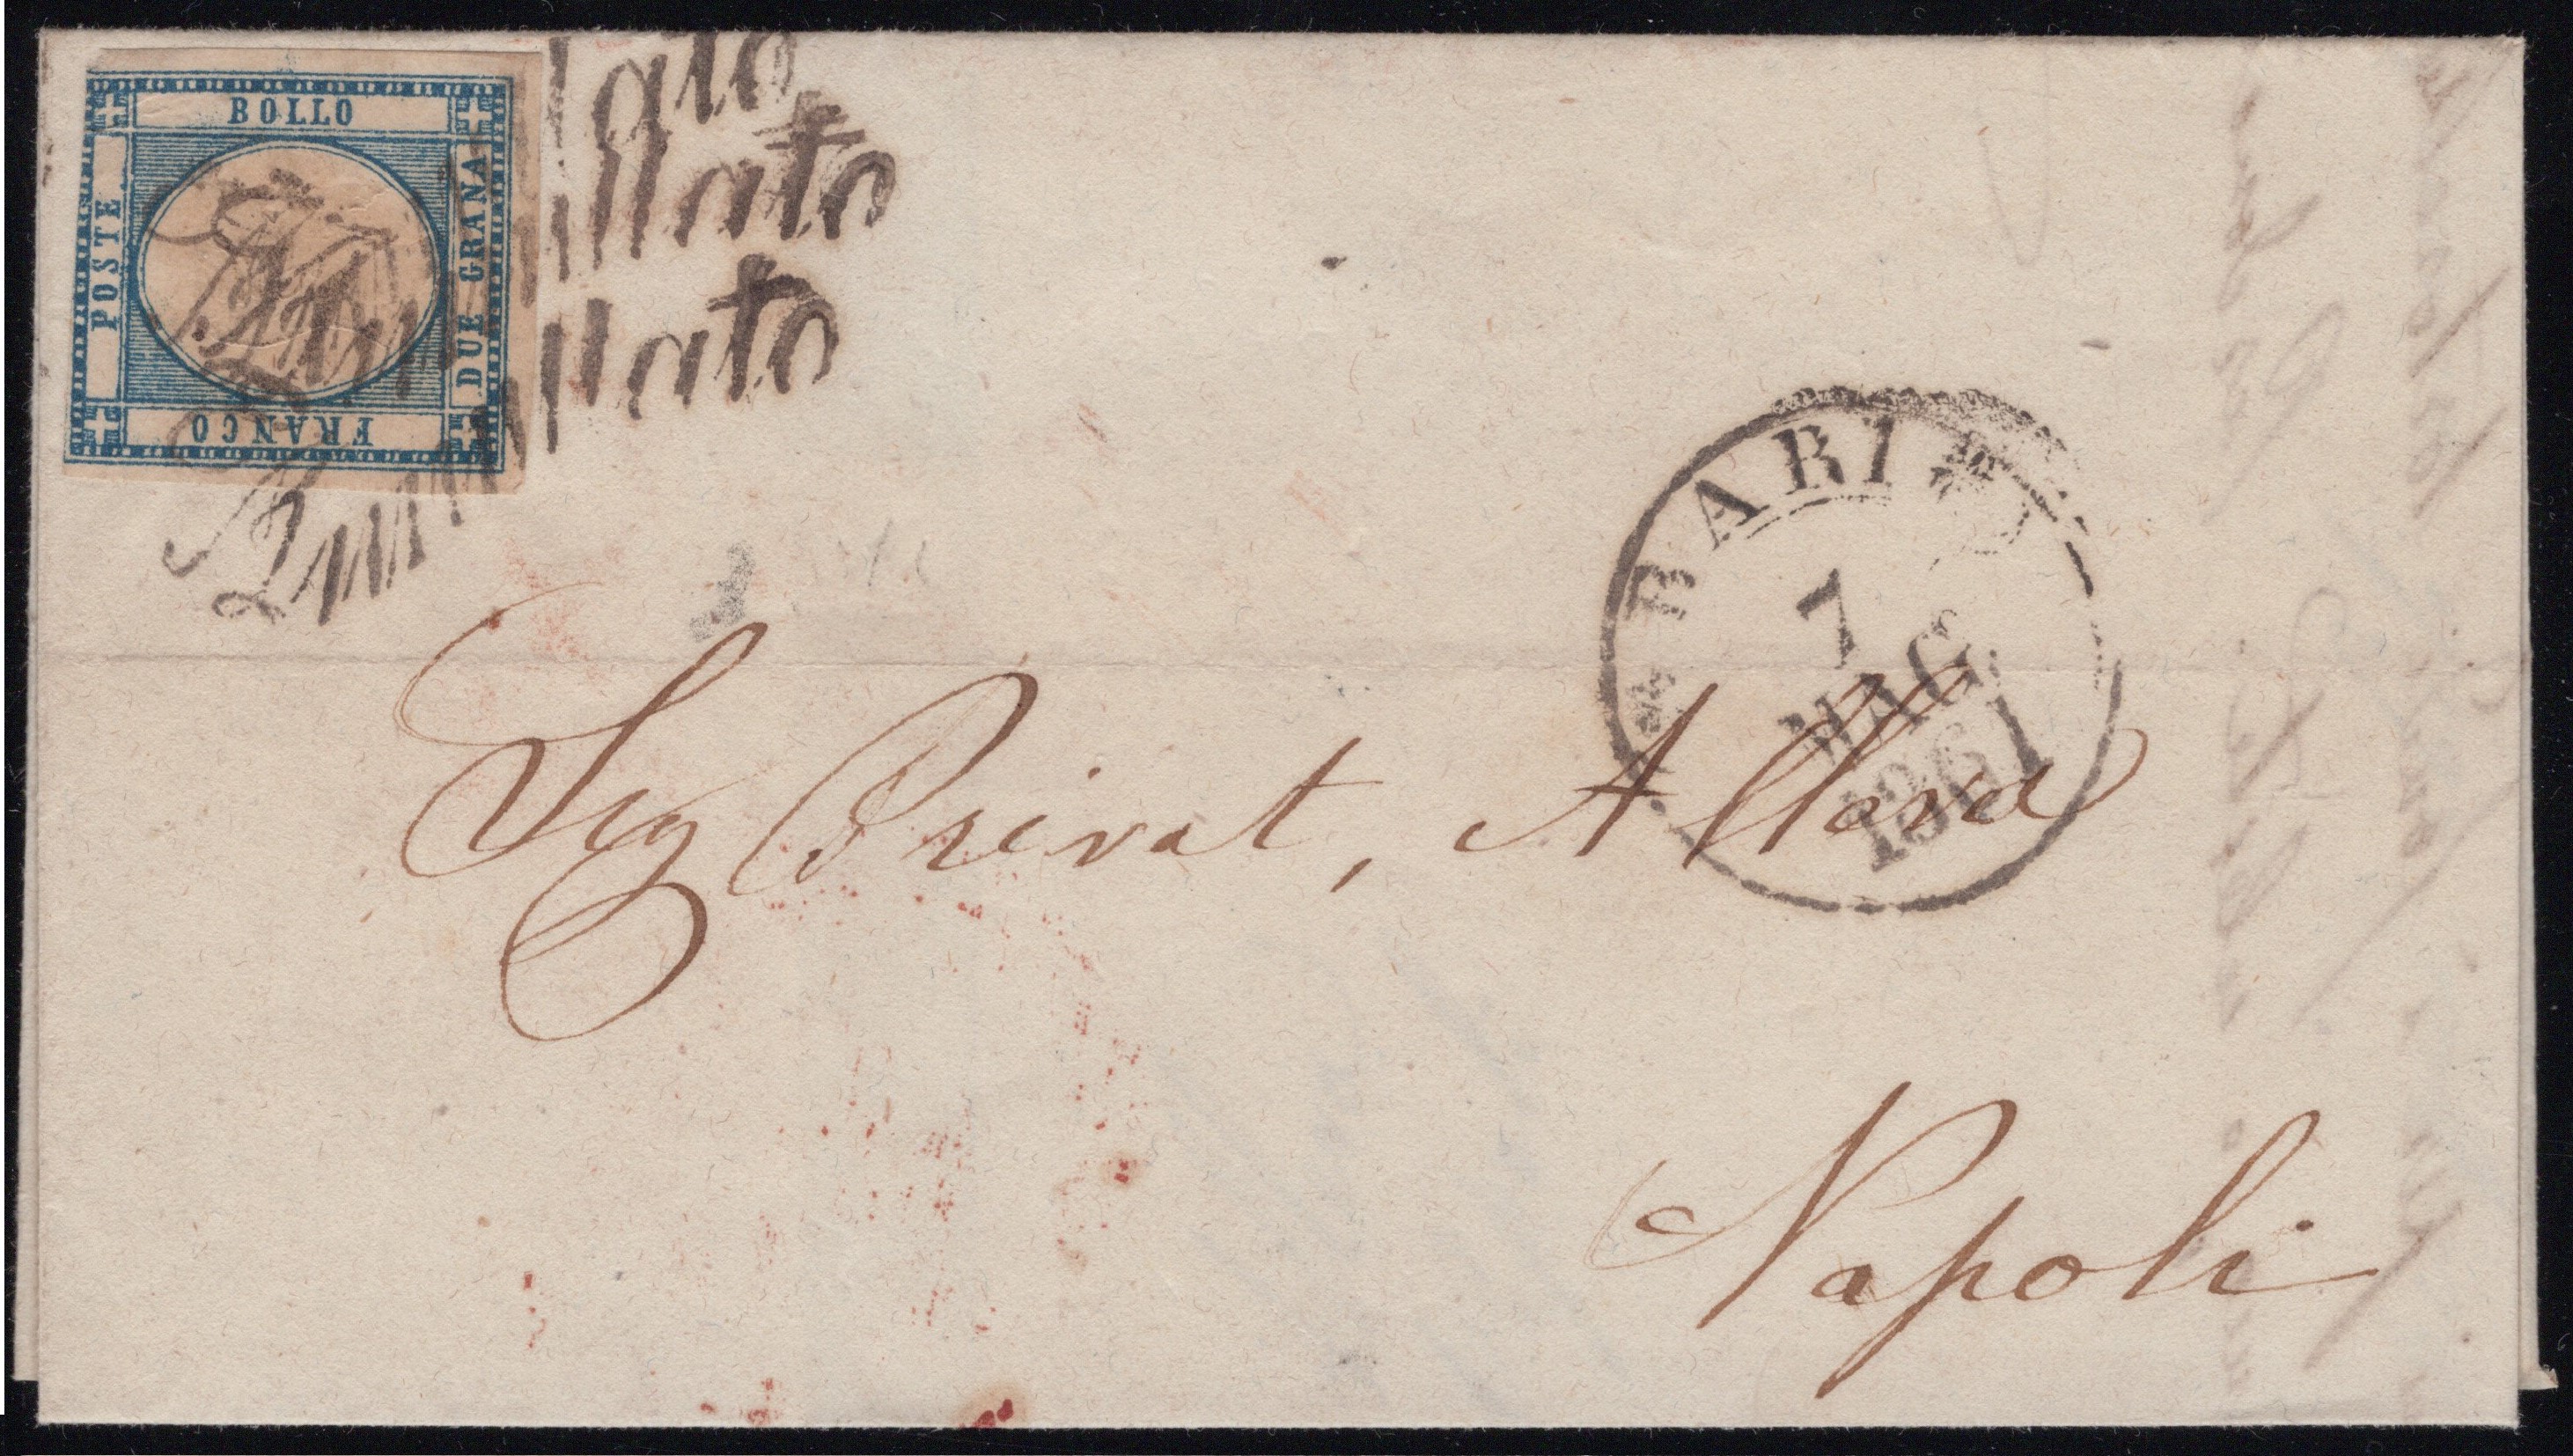 BOLLO
POSTE
DUE GRANA
FRANCO
Annullato
Annullato
BARI
7
MAG
1861
Sig Privat,
Napoli